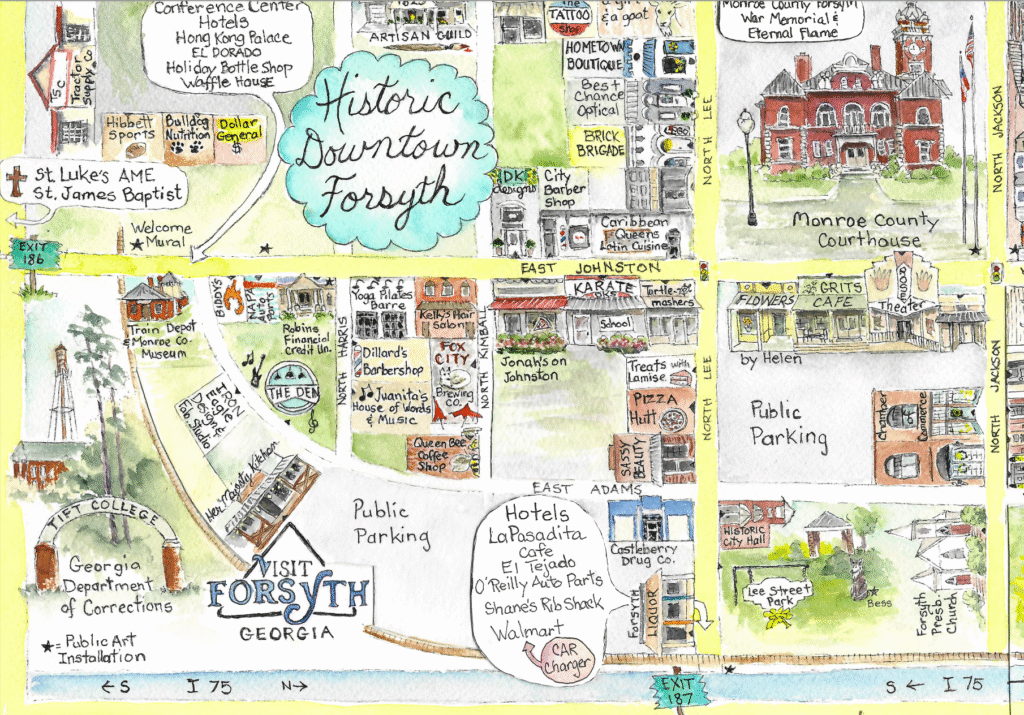 Conference Center
Hotels
Hong Kong Palace
EL DORADO
Holiday Bottle Shop
Waffle House
ARTISAN GUILD
The
TATTOO
Shop
& a goat
Monroe County Forsyth
War Memorial &
Eternal Flame
TSC
Tractor
Supply Co
HOMETOWN
BOUTIQUE
Best
Chance
Optical
BRICK
BRIGADE
Hibbett
Sports
Bulldog
Nutrition
Dollar
General
$
Historic
Downtown
Forsyth
NORTH LEE
NORTH JACKSON
St. Luke's AME
St. James Baptist
DK
designs
City
Barber
Shop
Caribbean
Queens
Latin Cuisine
Monroe County
Courthouse
Welcome
Mural
EXIT
186
EAST JOHNSTON
Train Depot
& Monroe Co.
Museum
BUDDY'S
NAPA
Auto
Parts
Robins
Financial
Credit Un.
NORTH HARRIS
Yoga Pilates
Barre
Kelly's Hair
Salon
NORTH KIMBALL
KARATE
School
Turtle-
mashers
Jonah's on
Johnston
FLOWERS
by Helen
GRITS
CAFE
Theater
Dillard's
Barbershop
FOX
CITY
Brewing
CO.
Juanita's
House of Words
& Music
Queen Bee
Coffee
Shop
THE DEN
Treats with
Lamise
PIZZA
Hutt
SASSY
BEAUTY
NORTH LEE
Public
Parking
Chamber
of
Commerce
NORTH JACKSON
Her Majesty Kitchen
EAST ADAMS
Public
Parking
TIFT COLLEGE
Georgia
Department
of Corrections
VISIT
FORSYTH
GEORGIA
Hotels
LaPasadita
Cafe
El Tejado
O'Reilly Auto Parts
Shane's Rib Shack
Walmart
CAR
Charger
Castleberry
Drug Co.
FORSYTH
LIQUOR
HISTORIC
City Hall
Lee Street
Park
Bess
Forsyth
Presbi
Church
★ = Public Art
Installation
← S I 75 N →
EXIT
187
S ← I 75